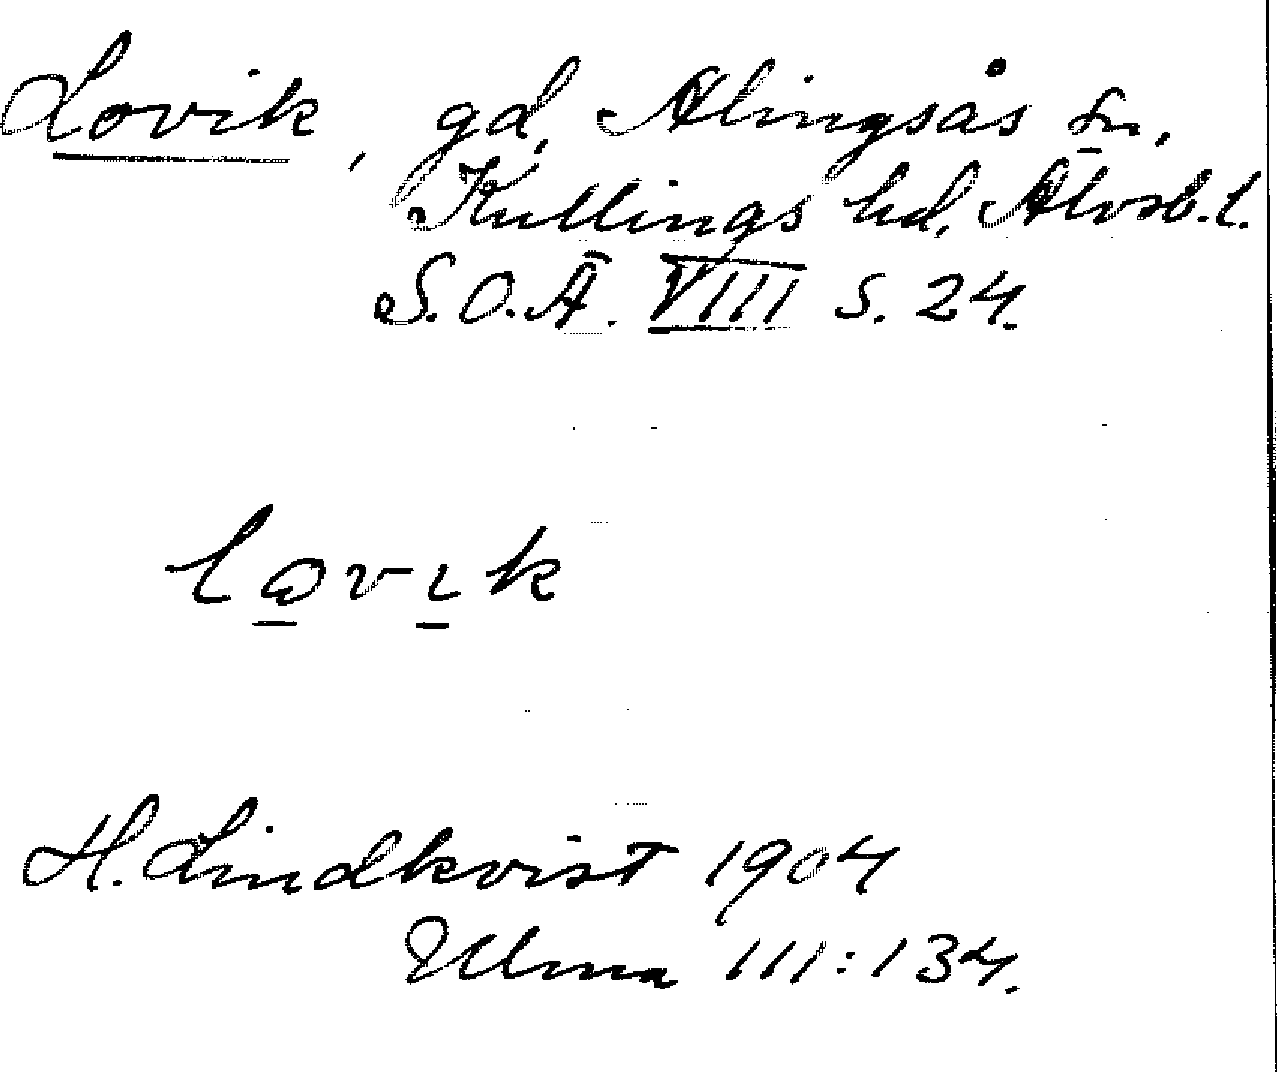 Lovik, gd, Alingsås sn,
Kullings hd, Älvsb. l.
S.O.Ä. VIII S. 24.
lωvιk
H. Lindkvist 1904
Ulma 111:134.